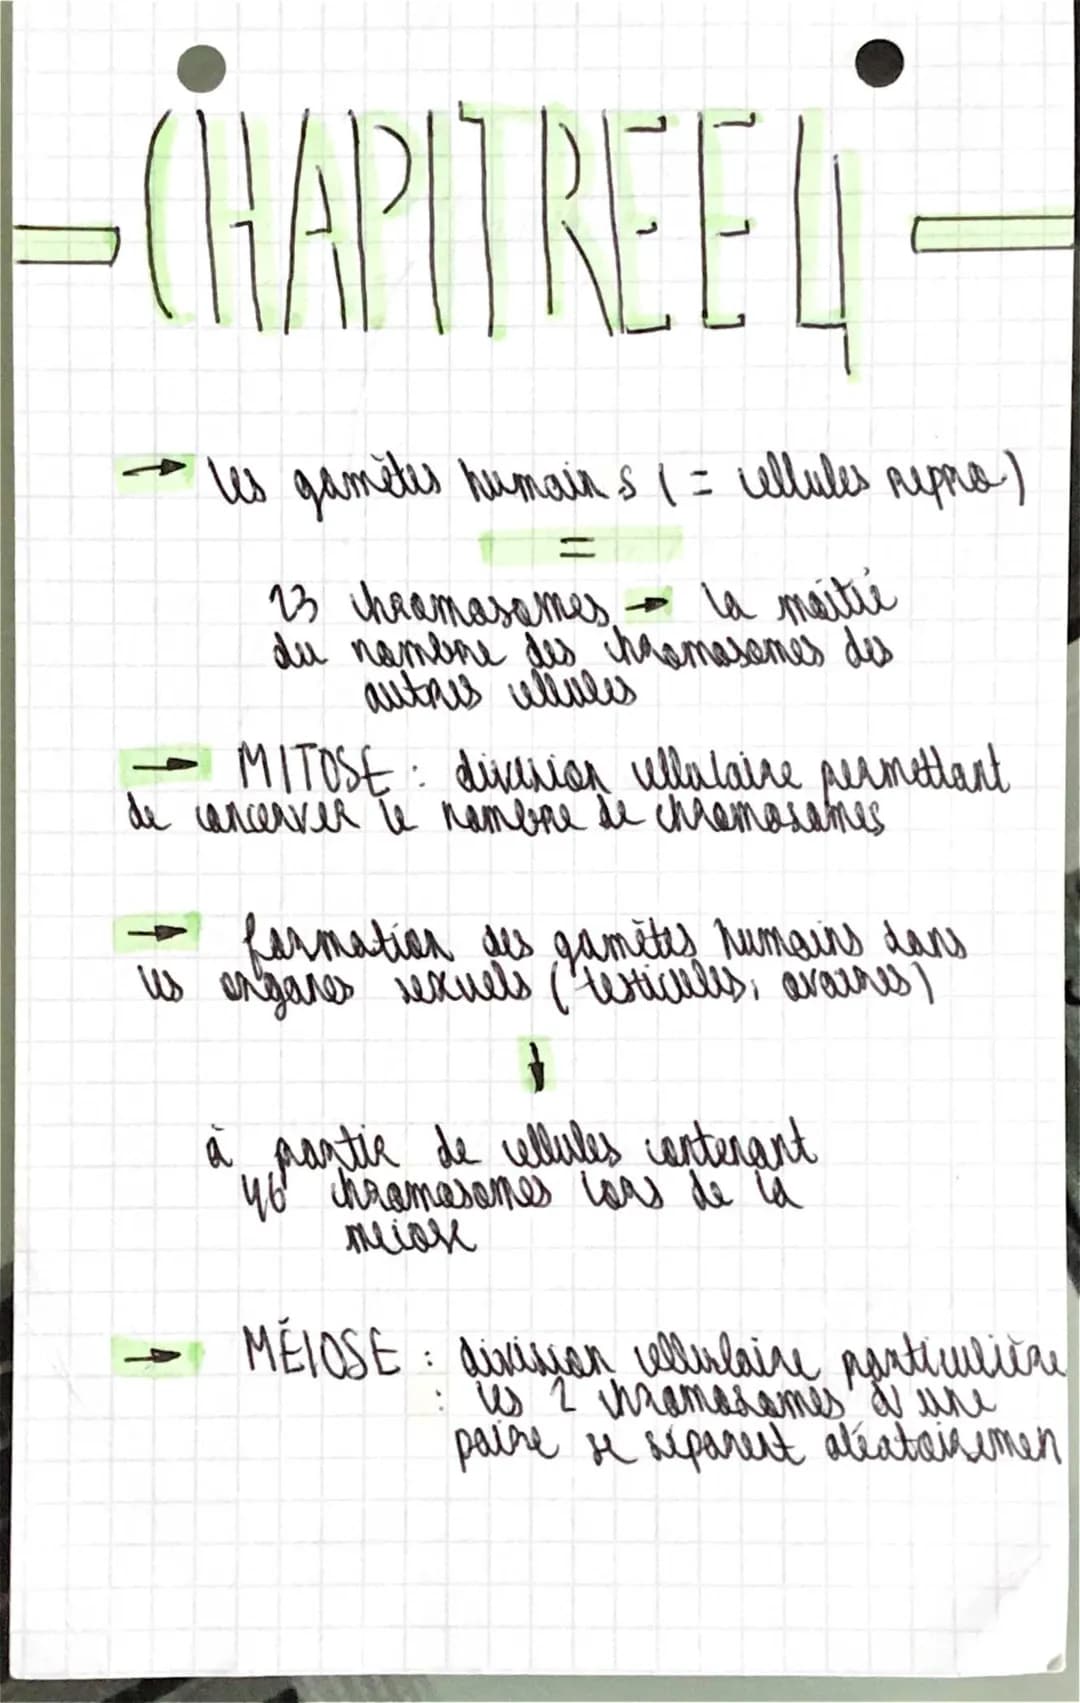 CHAPITRE E4
→ les gamètes humains (= cellules repro)
=
23 chromosomes → la moitié
du nombre des chromosomes des
autres cellules
→ MITOSE : division cellulaire permettant
de concerver le nombre de chromosomes
→ formation des gamètes humains dans
les organes sexuels (testicules, ovaires)
↓
à partir de cellules contenant
46 chromosomes lors de la
méiose
→ MÉIOSE : division cellulaire particulière
: les 2 chromosomes d'une
paire se séparent aléatoiremen